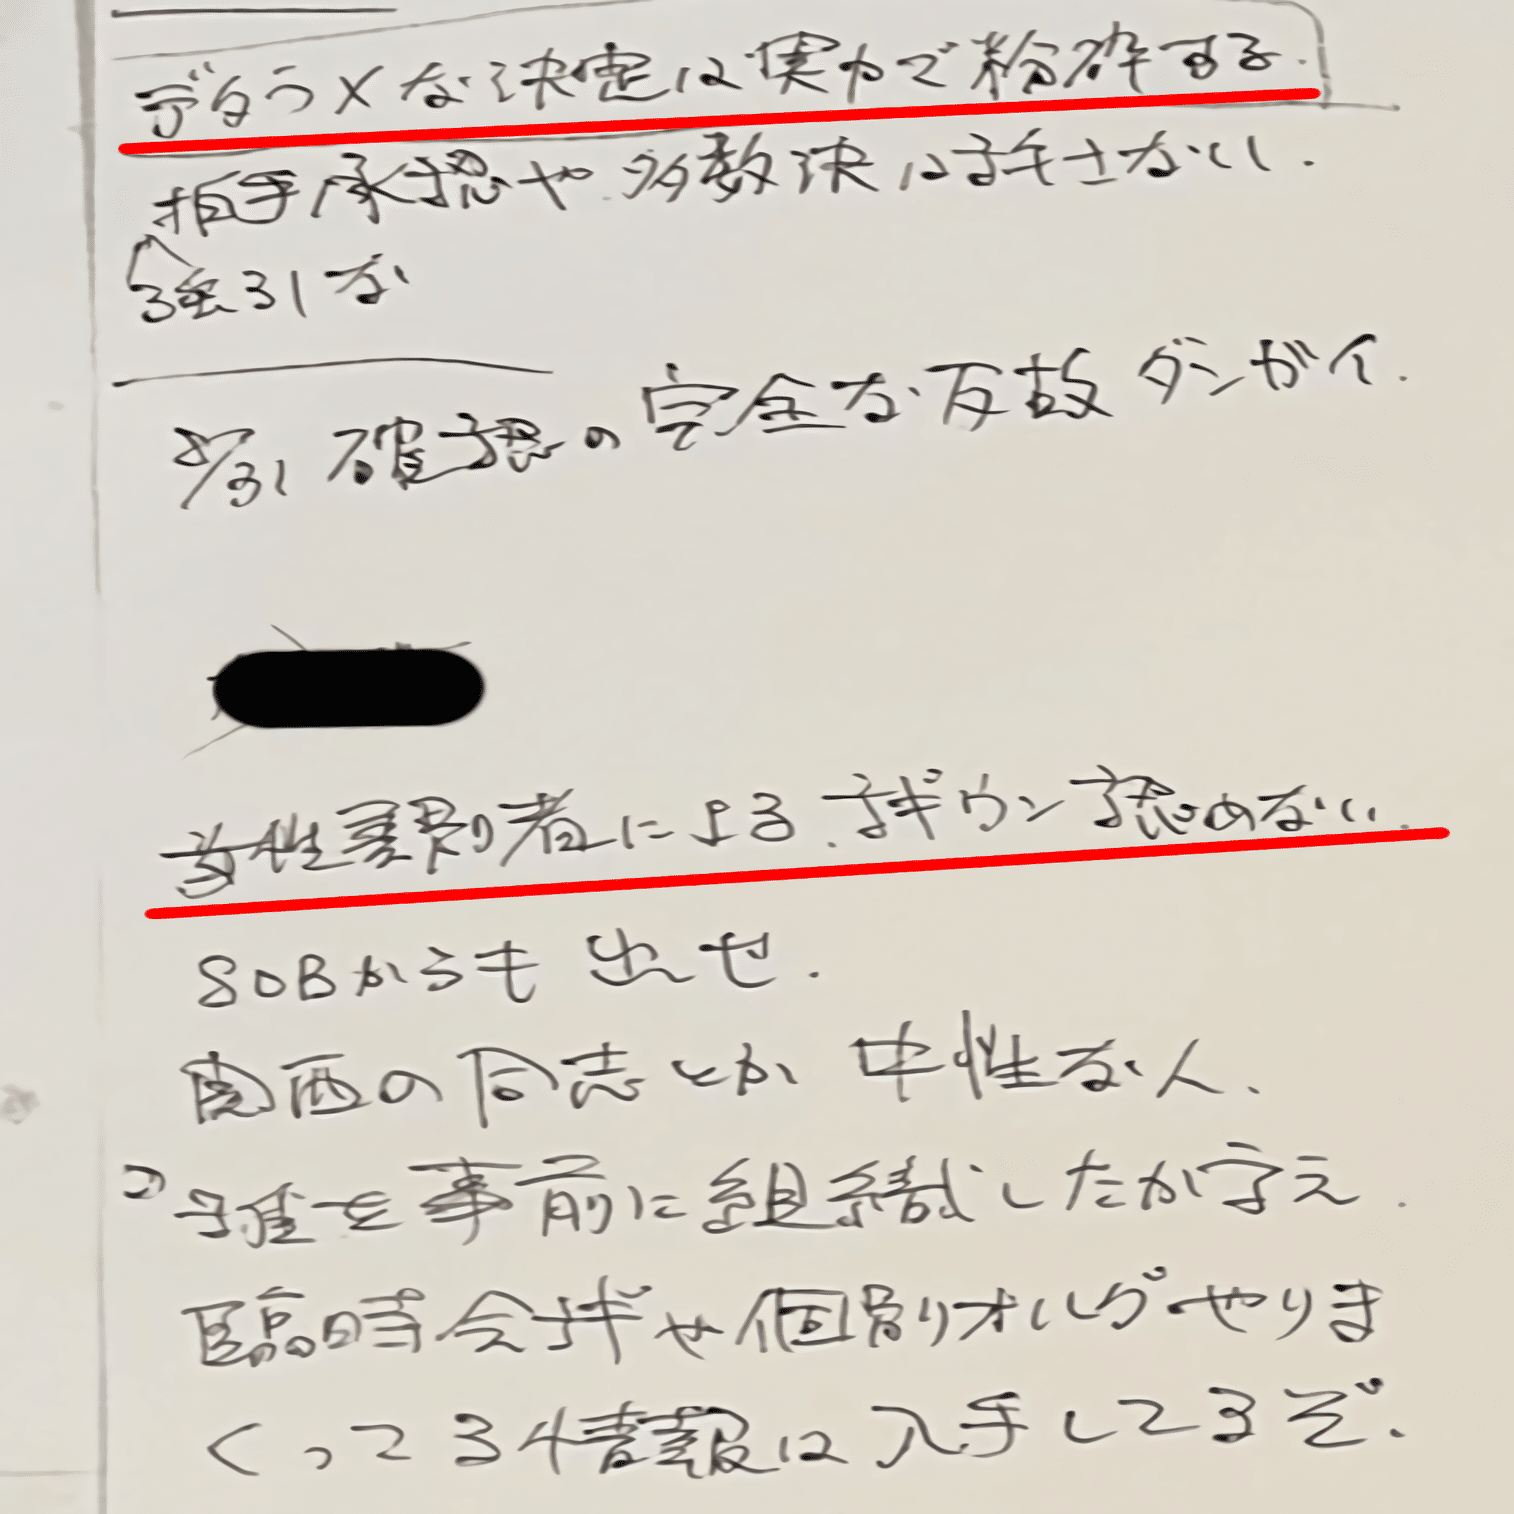 デタラメな決定は実力で粉砕する.
拍手承認や多数決は許さない.
強引な
8/31 確認の完全な反故ダンガイ.
女性差別者による.議ウン認めない.
SOBからも出せ.
関西の同志とか中性な人.
誰を事前に組織したか言え.
臨時会議や個別オルグやりま
くってる情報は入手してるぞ.